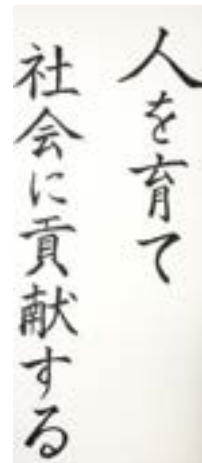 人を育て
社会に貢献する